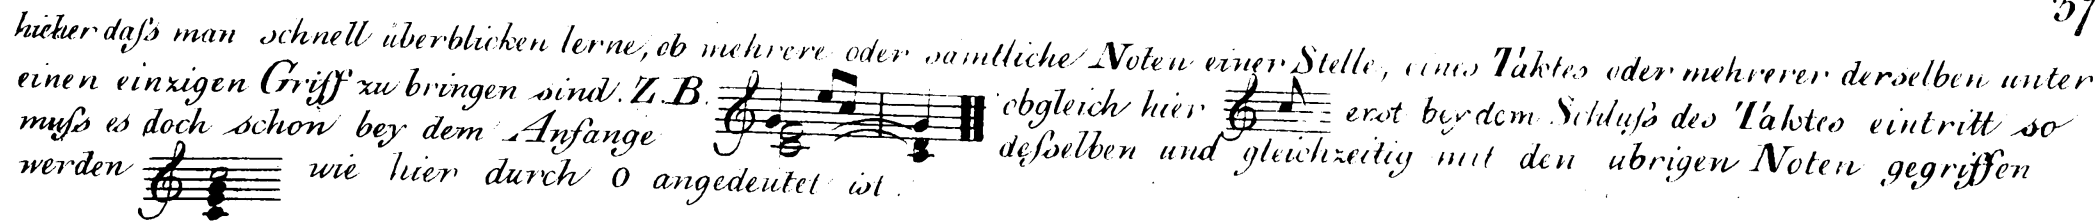 37
hieher daſs man schnell überblicken lerne, ob mehrere oder samtliche Noten einer Stelle, eines Taktes oder mehrerer derselben unter
einen einzigen Griff zu bringen sind. Z. B. obgleich hier erst bey dem Schluſs des Taktes eintritt so
muſs es doch schon bey dem Anfange deſselben und gleichzeitig mit den ubrigen Noten gegriffen
werden wie hier durch O angedeutet ist.